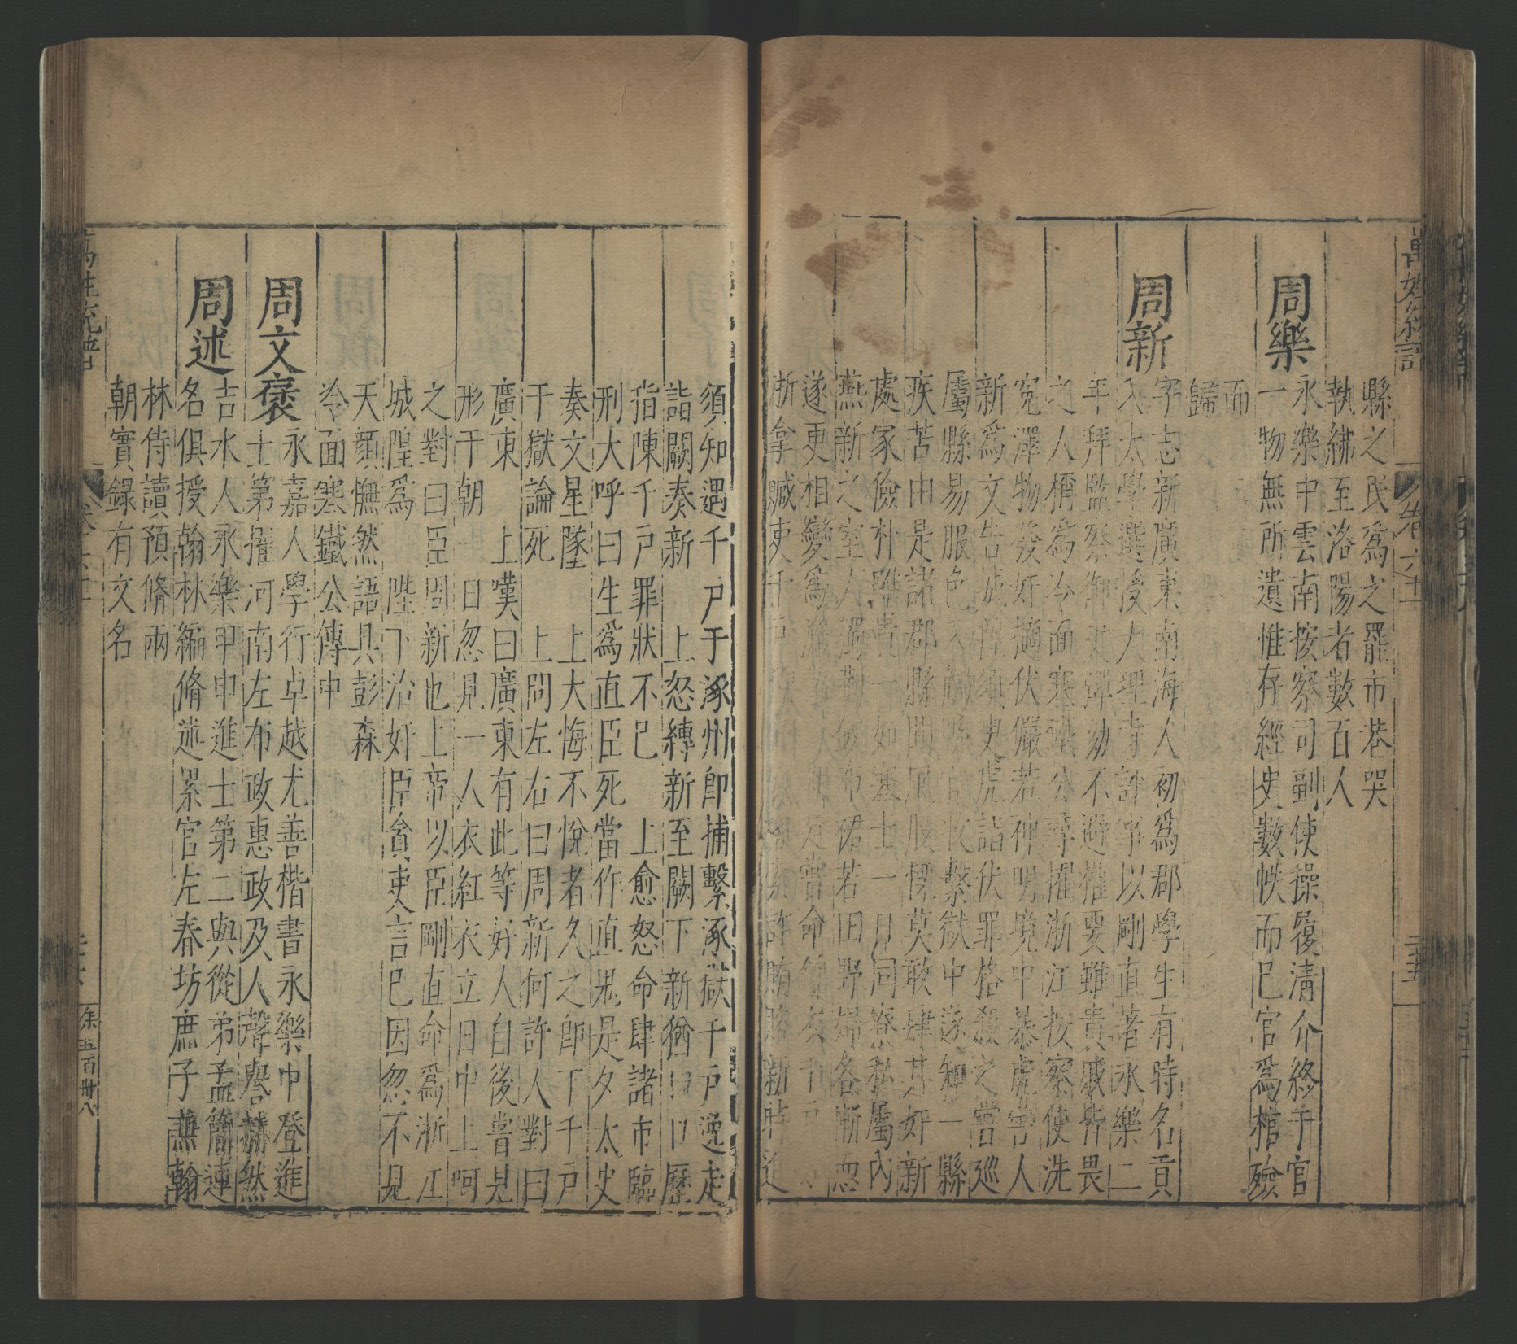 縣之民爲之罷市巷哭
執紼至洛陽者數百人
周樂
永樂中雲南按察司副使操履清介終于官
一物無所遺惟存經史數帙而已官爲棺殮
而
歸
周新
字志新廣東南海人初爲郡學生有時名貢
入太學選授大理寺評事以剛直著永樂二
年拜監察御史彈劾不避權要雖貴戚皆畏
之人稱爲冷面寒鐵公尋擢浙江按察使洗
冤澤物發奸摘伏儼若神明境中暴虎害人
新爲文告城隍須臾虎詣伏罪格殺之嘗巡
屬縣易服色入縣 繫獄中遂知一縣
疾苦由是諸郡縣聞風股慄莫敢肆其奸新
處家儉朴雖貴 如寒士一日同寮私屬內
燕新之室人 布裙若田野婦各漸恧
遂更相變爲 嘗命
浙拿贓吏千戶
須知遇千戶于涿州即捕繫涿獄千戶逸走
詣闕奏新 上怒縛新至闕下新猶 歷
指陳千戶罪狀不已 上愈怒命肆諸市臨
刑大呼曰生爲直臣死當作直鬼是夕太史
奏文星墜 上大悔不悅者久之即丁千戶
于獄論死 上問左右曰周新何許人對曰
廣東 上嘆曰廣東有此等好人自後嘗見
形于朝 日忽見一人衣紅衣立日中上呵
之對曰臣周新也上帝以臣剛直命爲浙江
城隍爲 陛下治奸臣貪吏言已因忽不見
天顏憮然語具彭森
冷面寒鐵公傳中
周文褒
永嘉人學行卓越尤善楷書永樂中登進
士第擢河南左布政惠政及人聲譽赫然
周述
吉水人永樂甲申進士第二與從弟孟簡連
名俱授翰林編脩述累官左春坊庶子兼翰
林侍讀預脩兩
朝實錄有文名